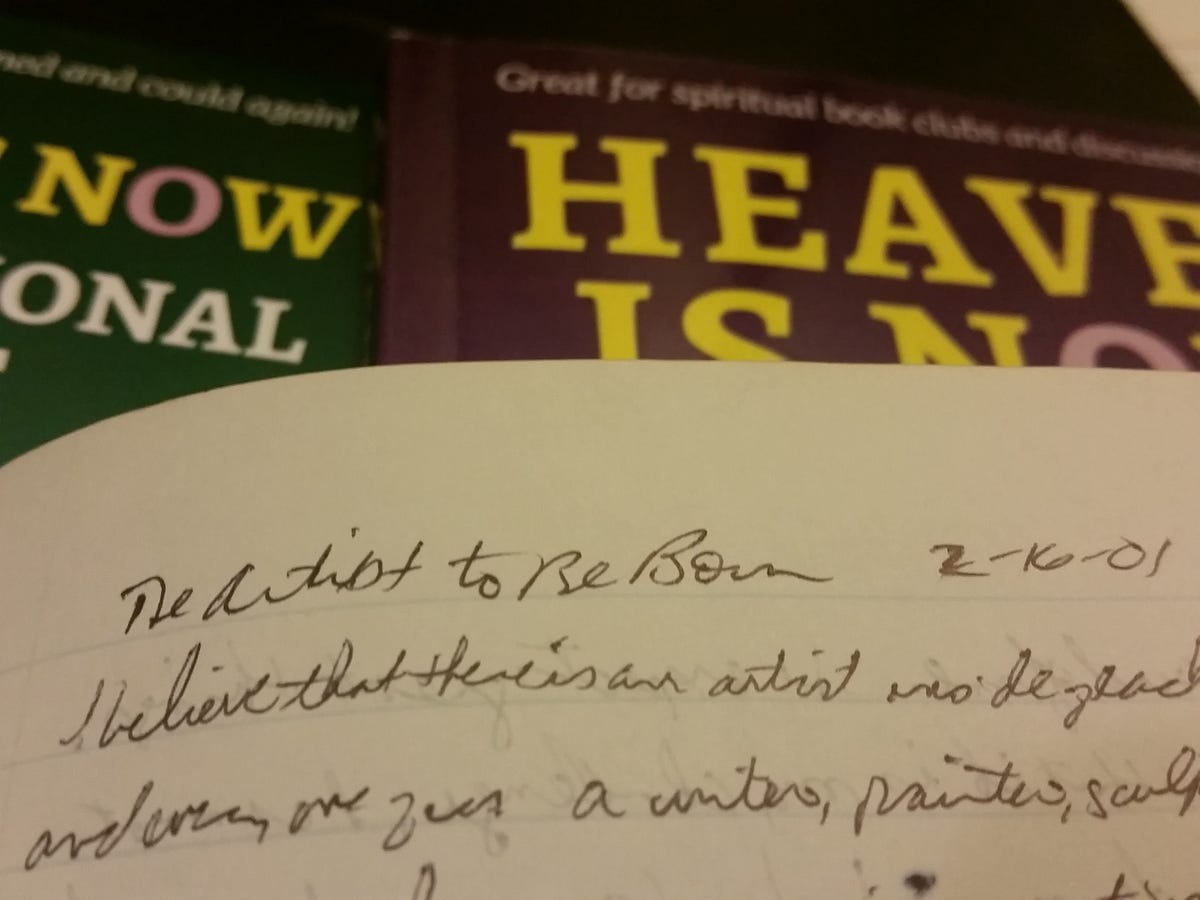 ned and could again!
NOW
IONAL
Great for spiritual book clubs and discussio
HEAVE
IS NO
The Artist to Be Born 2-16-01
I believe that there is an artist inside of each
and every one of us a writer, painter, sculp